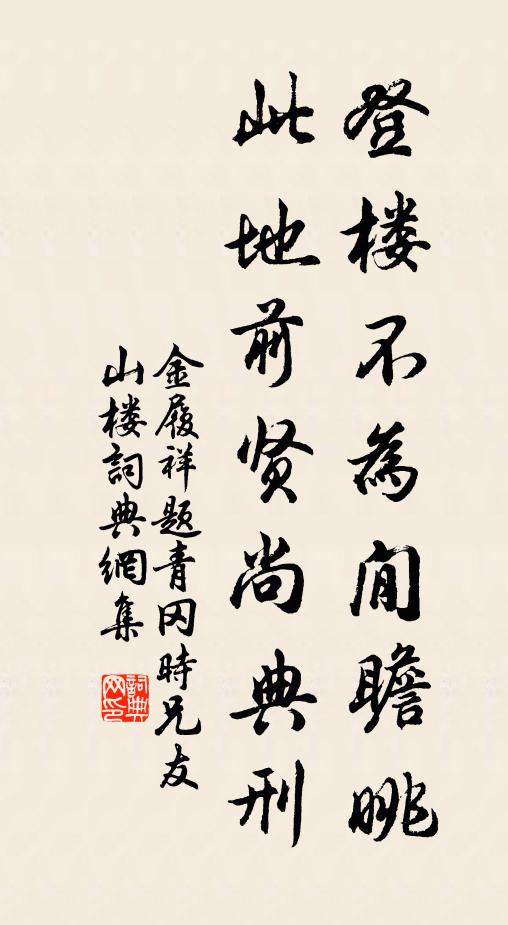 登楼不為閒瞻眺
此地前贤尚典刑
金履祥题青冈時兄友
山楼詞典網集
詞典网印